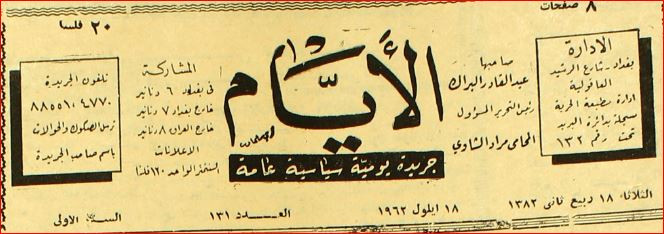 ٨ صفحات
٢٠ فلسا
الادارة
بغداد - شارع الرشيد
العاقولية
ادارة مطبعة الحرية
مسجلة بدائرة البريد
تحت رقم ١٣٢
صاحبها
عبد القادر البراك
رئيس التحرير المسؤول
المحامي مراد الشاوي
الأيام
جريدة يومية سياسية عامة
المشاركة
في بغداد ٦ دنانير
خارج بغداد ٧ دنانير
خارج العراق ٨ دنانير
الاعلانات
السنتمتر الواحد ١٦٠ فلسا
تلفون الجريدة
٨٨٥٥١٠٤٧٧٠
ترسل الصكوك والحوالات
باسم صاحب الجريدة
الثلاثاء ١٨ ربيع ثاني ١٣٨٢
١٨ ايلول ١٩٦٢
العدد ١٣١
السنة الاولى